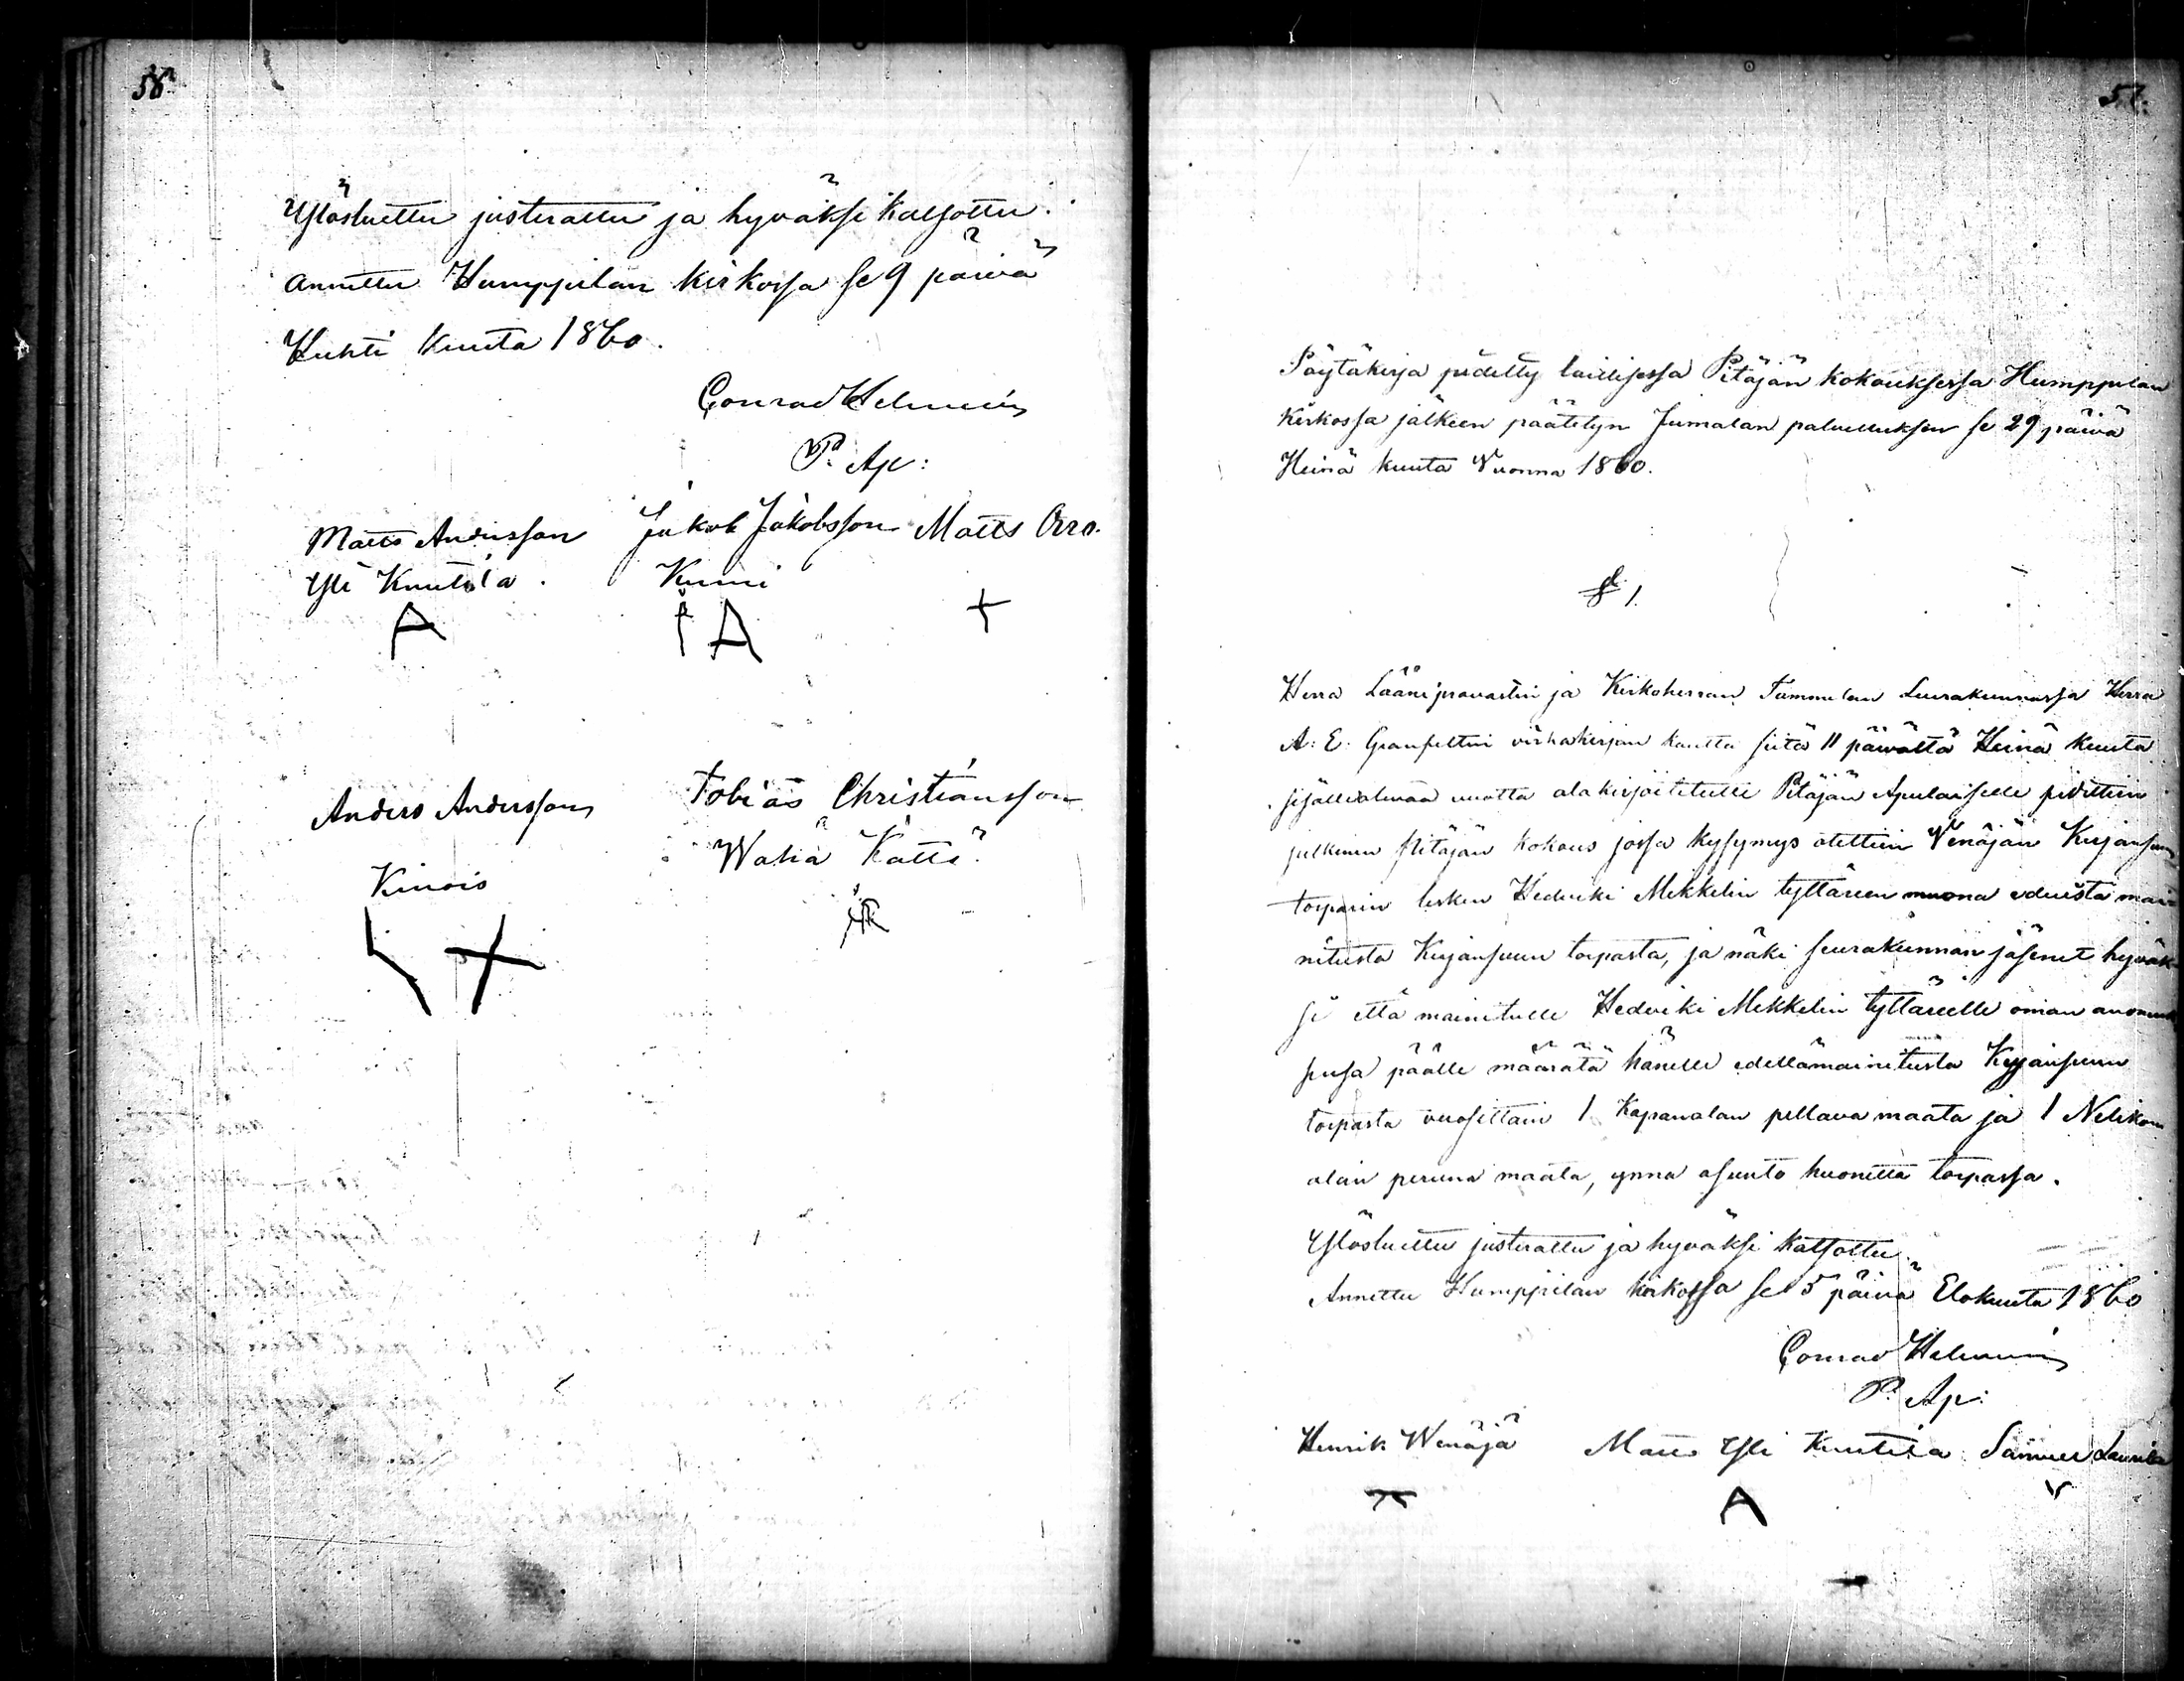 58
Ylösluettu justerattu ja hyväksi katsottu.
annettu Humppilan kirkossa se 9 päivä
Huhti kuuta 1860.
Conrad Helenius
P. Ap:
Matts Andersson Jakob Jakobsson Matts Orro.
Yli Kuutila. Kurri
A A +
Anders Andersson Tobias Christiansson
Waha Kättö
57.
Pöytäkirja pidetty laillisessa Pitäjän kokouksessa Humppilan
kirkossa jälkeen päätetyn Jumalan palvelluksen se 29 päivä
Heinä kuuta Vuonna 1860.
§ 1.
Herra Lääniprovastin ja Kirkoherran Tammelan Seurakunnassa Herra
A: E: Granfeltin virkakirjan kautta siitä 11 päivältä Heinä kuuta
sisällolevaa vuotta alakirjoitetulle Pitäjän Apulaiselle pidettiin
julkinen Pitäjän kokous jossa kysymys otettiin Venäjän Kirjansuun
torparin lesken Hedviki Mikkelin tyttären muona eduista mai-
nitusta Kirjansuun torpasta, ja näki seurakunnan jäsenet hyväk-
si että mainitulle Hedviki Mekkelin tyttärelle oman anomuk-
sensa päälle määrätä hänelle edellämainitusta Kirjansuun
torpasta vuosittain 1 Kapanalan pellava maata ja 1 Nelikon
alan peruna maata, ynnä asunto huonetta torpassa.
Ylösluettu justerattu ja hyväksi katsottu.
Annettu Humppilan kirkossa se 5 päivä Elokuuta 1860
Conrad Helenius
P. Ap:
Henrik Wenäjä Matts Yli Kuutila Samuel Laurila
A